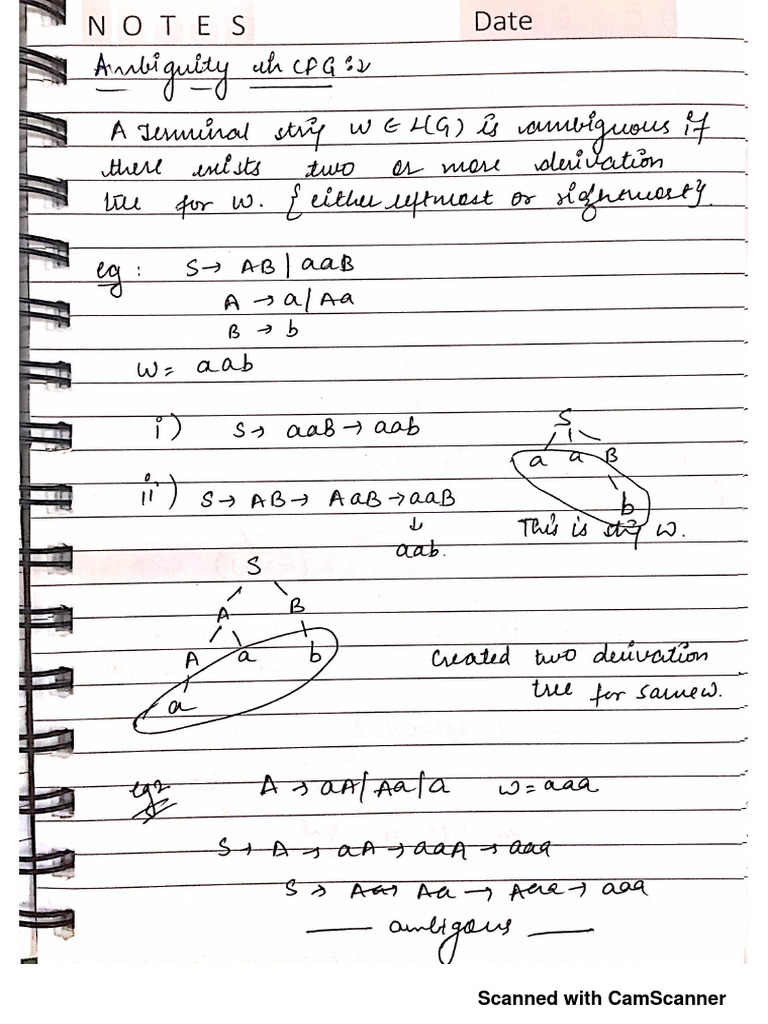 NOTES Date
Ambiguity in CFG :-
A Terminal strig W ∈ L(G) is ambiguous if
there exists two or more derivation
tree for w. {either leftmost or rightmost}.
eg : S → AB | aaB
A → a/Aa
B → b
W = aab
i) S → aaB → aab
S
a a B
b
This is strig w.
ii) S → AB → AaB → aaB
↓
aab.
S
A B
A a b
a
Created two derivation
tree for same w.
eg2 A → aA/Aa/a w = aaa
S → A → aA → aaA → aaa
S → Aa → Aa → Aaa → aaa
ambigous
Scanned with CamScanner